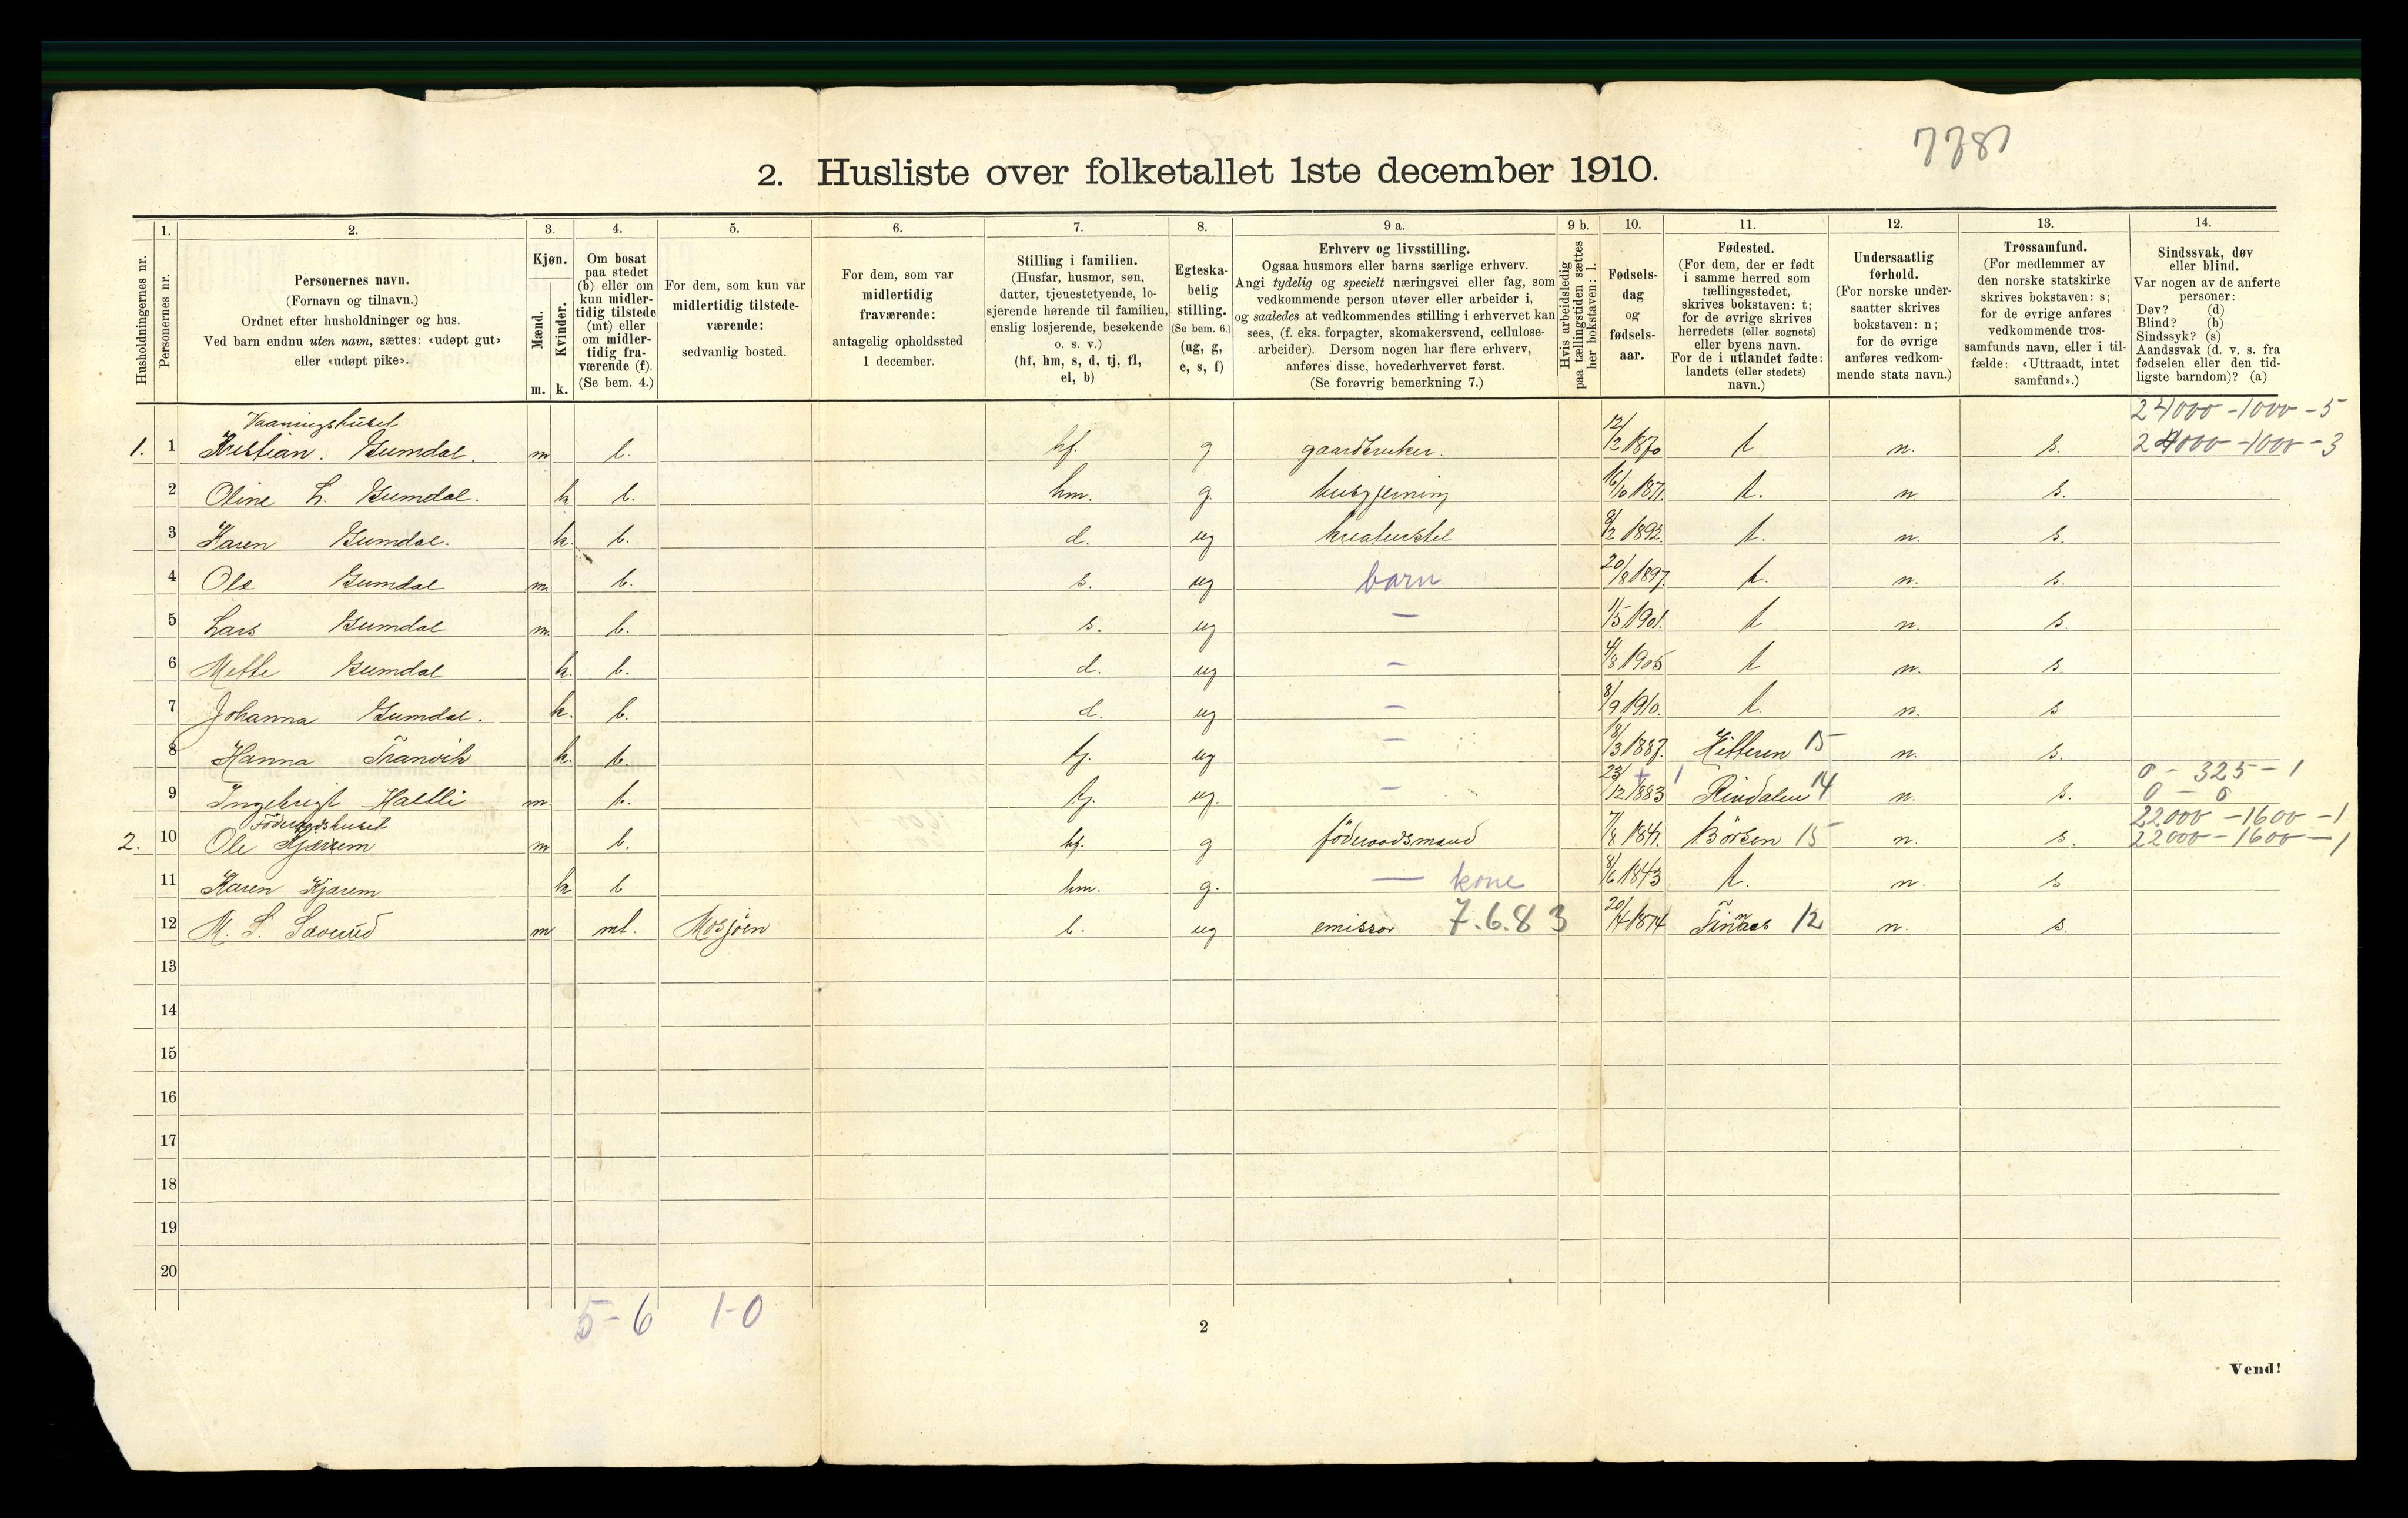 7787
2. Husliste over folketallet 1ste december 1910.
Husholdningernes nr.
1.
Personernes nr.
2.
Personernes navn.
(Fornavn og tilnavn.)
Ordnet efter husholdninger og hus.
Ved barn endnu uten navn, sættes: «udøpt gut»
eller «udøpt pike».
3.
Kjøn.
Mænd.
Kvinder.
m. k.
4.
Om bosat
paa stedet
(b) eller om
kun midler-
tidig tilstede
(mt) eller
om midler-
tidig fra-
værende (f).
(Se bem. 4.)
5.
For dem, som kun var
midlertidig tilstede-
værende:
sedvanlig bosted.
6.
For dem, som var
midlertidig
fraværende:
antagelig opholdssted
1 december.
7.
Stilling i familien.
(Husfar, husmor, søn,
datter, tjenestetyende, lo-
sjerende hørende til familien,
enslig losjerende, besøkende
o. s. v.)
(hf, hm, s, d, tj, fl,
el, b)
8.
Egteska-
belig
stilling.
(Se bem. 6.)
(ug, g,
e, s, f)
9 a.
Erhverv og livsstilling.
Ogsaa husmors eller barns særlige erhverv.
Angi tydelig og specielt næringsvei eller fag, som
vedkommende person utøver eller arbeider i,
og saaledes at vedkommendes stilling i erhvervet kan
sees, (f. eks. forpagter, skomakersvend, cellulose-
arbeider). Dersom nogen har flere erhverv,
anføres disse, hovederhvervet først.
(Se forøvrig bemerkning 7.)
9 b.
Hvis arbeidsledig
paa tællingstiden sættes
her bokstaven: l.
10.
Fødsels-
dag
og
fødsels-
aar.
11.
Fødested.
(For dem, der er født
i samme herred som
tællingsstedet,
skrives bokstaven: t;
for de øvrige skrives
herredets (eller sognets)
eller byens navn.
For de i utlandet fødte:
landets (eller stedets)
navn.)
12.
Undersaatlig
forhold.
(For norske under-
saatter skrives
bokstaven: n;
for de øvrige
anføres vedkom-
mende stats navn.)
13.
Trossamfund.
(For medlemmer av
den norske statskirke
skrives bokstaven: s;
for de øvrige anføres
vedkommende tros-
samfunds navn, eller i til-
fælde: «Uttraadt, intet
samfund».)
14.
Sindssvak, døv
eller blind.
Var nogen av de anførte
personer:
Døv? (d)
Blind? (b)
Sindssyk? (s)
Aandssvak (d. v. s. fra
fødselen eller den tid-
ligste barndom)? (a)
Vaaningshuset 24000 - 1000 - 5
1. 1 Kristian. Gumdal. m b. hf. g gaardbruker. 12/12 1870 t n. s. 24000 - 1000 - 3
2 Oline L. Gumdal. k b. hm. g. husgjerning 16/6 1871. t. n s.
3 Karen Gumdal. k. b. d. ug kreaturstel 8/2 1892. t. n. s.
4 Ole Gumdal m. b. s. ug barn 20/8 1897. t. n. s.
5 Lars Gumdal m. b. s. ug — 1/5 1901. t n. s.
6 Mette Gumdal k. b. d. ug — 4/8 1905 t n. s
7 Johanna Gumdal. k. b. d. ug — 8/9 1910. t. n. s
8 Hanna Tranvik k. b. tj. ug — 18/3 1887. Hitteren 15 n. s.
0 - 325 - 1
9 Ingebrigt Haltli m. b. tj. ug. — 23/12 1883 Rindalen 14 n. s. 0 - 0
Föderaadshuset 22000 - 1600 - 1
2. 10 Ole Kjærem m b. hf. g föderaadsmand 7/8 1841. Börsen 15 n. s. 22000 - 1600 - 1
11 Karen Kjærem k b hm. g. — kone 8/6 1843 t. n. s
12 M. S. Sæverud m mt. Mosjöen b. ug emissær 7.6.83 20/4 1874 Finnaas 12 n. s.
13
14
15
16
17
18
19
20
5-6 1-0
2
Vend!